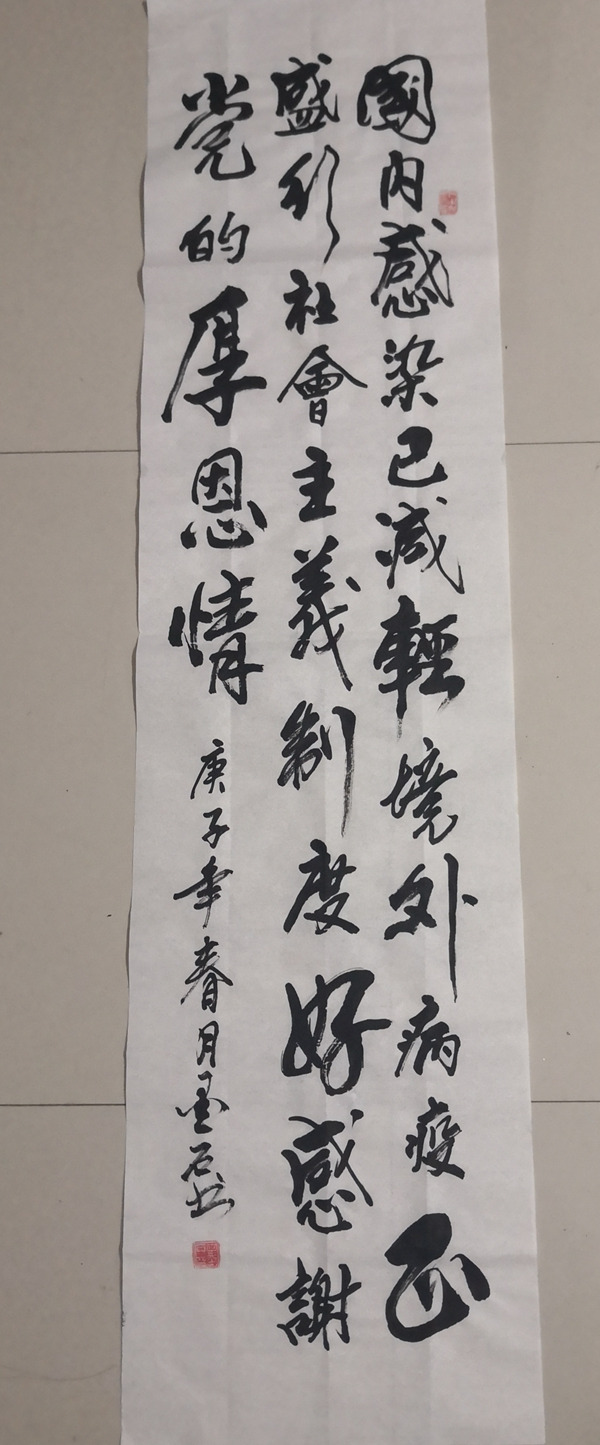 國内感染已減輕境外病疫正
盛行社會主義制度好感謝
党的厚恩情
庚子年春月墨石书